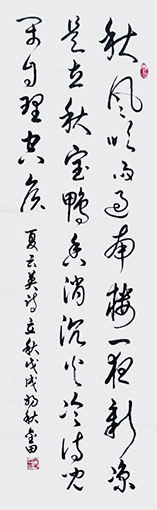 秋风吹雨过南楼一夜新凉
是立秋宝鸭香消沉火冷侍儿
闲自理空侯
夏云英诗立秋戊戌初秋金田